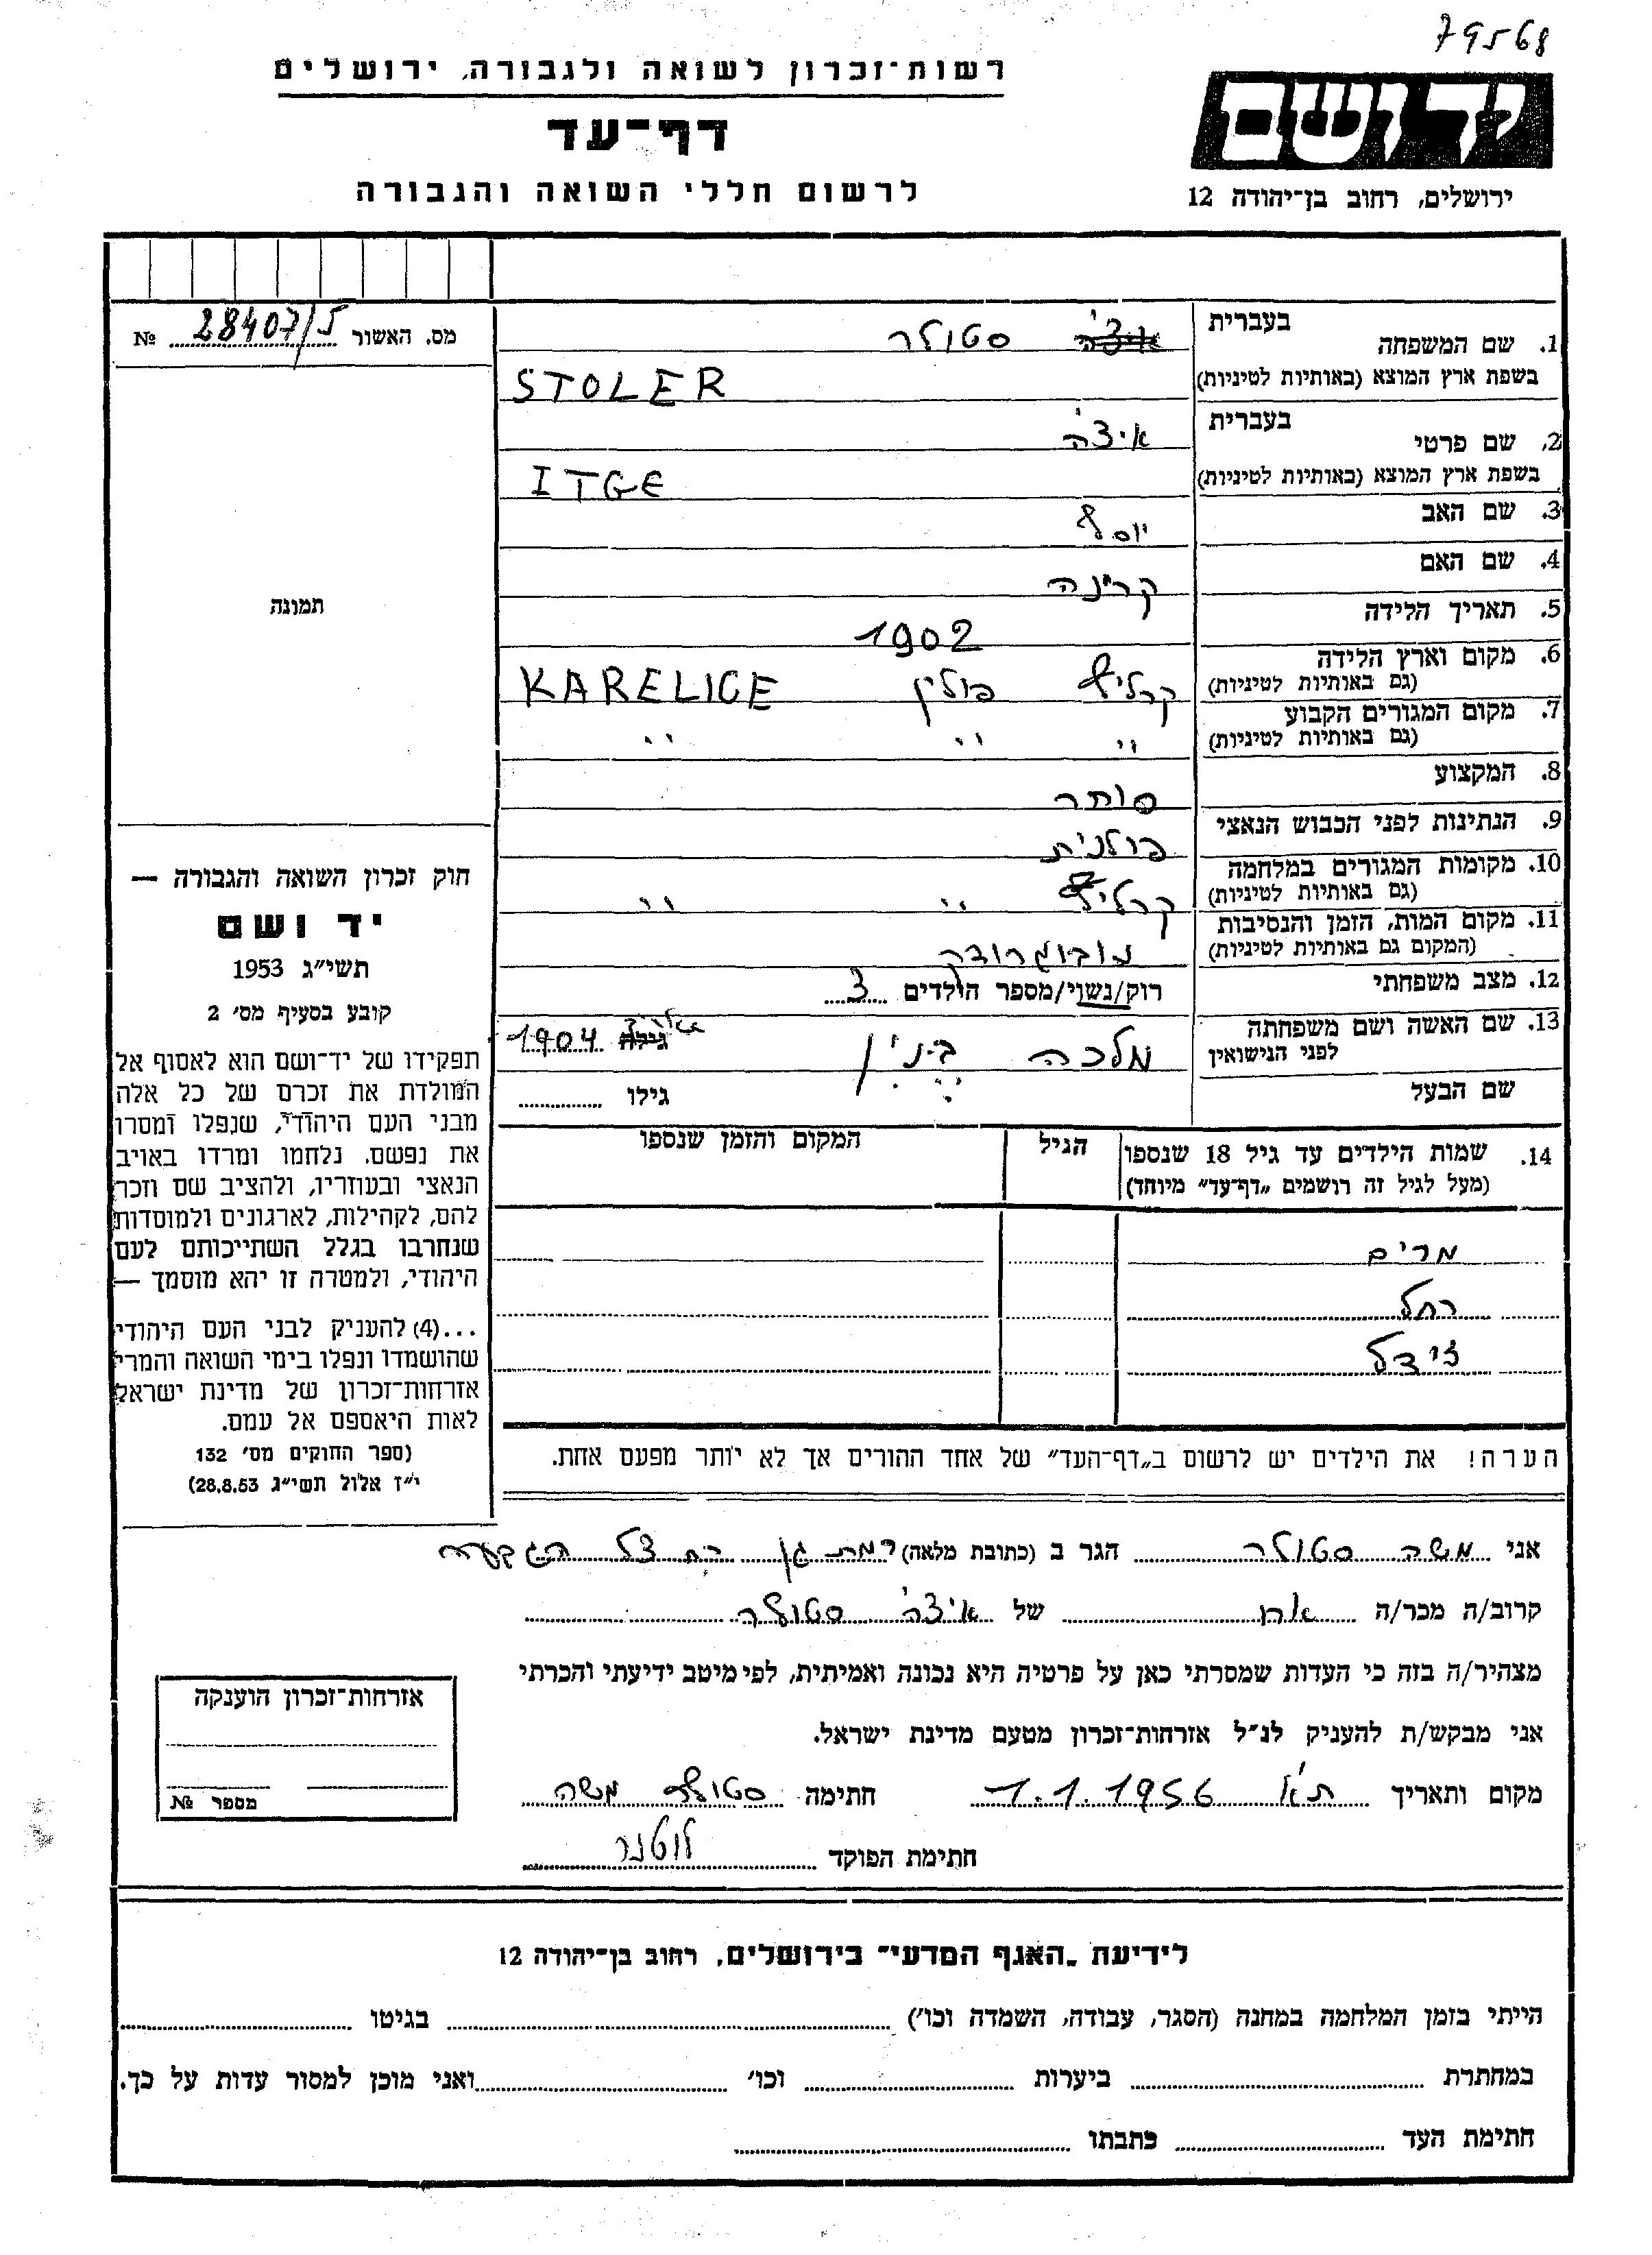 79568
רשות־זכרון לשואה ולגבורה, ירושלים
דף־עד
לרשום חללי השואה והגבורה
יד ושם
ירושלים, רחוב בן־יהודה 12
מס. האשור 28407/5 №
תמונה
חוק זכרון השואה והגבורה —
יד ושם
תשי״ג 1953
קובע בסעיף מס׳ 2
תפקידו של יד־ושם הוא לאסוף אל
המולדת את זכרם של כל אלה
מבני העם היהודי, שנפלו ומסרו
את נפשם, נלחמו ומרדו באויב
הנאצי ובעוזריו, ולהציב שם וזכר
להם, לקהילות, לארגונים ולמוסדות
שנחרבו בגלל השתייכותם לעם
היהודי, ולמטרה זו יהא מוסמך —
...(4) להעניק לבני העם היהודי
שהושמדו ונפלו בימי השואה והמרי
אזרחות־זכרון של מדינת ישראל
לאות היאספם אל עמם.
(ספר החוקים מס׳ 132
י״ז אלול תשי״ג 28.8.53)
1. שם המשפחה בעברית איצ'ה סטולר
בשפת ארץ המוצא (באותיות לטיניות) STOLER
2. שם פרטי בעברית איצ'ה
בשפת ארץ המוצא (באותיות לטיניות) ITGE
3. שם האב יוסף
4. שם האם קריינה
5. תאריך הלידה 1902
6. מקום וארץ הלידה קרליץ פולין KARELICE
(גם באותיות לטיניות)
7. מקום המגורים הקבוע " " "
(גם באותיות לטיניות)
8. המקצוע סוחר
9. הנתינות לפני הכבוש הנאצי פולנית
10. מקומות המגורים במלחמה קרליץ " "
(גם באותיות לטיניות)
11. מקום המות, הזמן והנסיבות נובוגרודק
(המקום גם באותיות לטיניות)
12. מצב משפחתי רוק/נשוי/מספר הילדים 3
13. שם האשה ושם משפחתה מלכה גילה 1904
לפני הנישואין
שם הבעל גילו
14. שמות הילדים עד גיל 18 שנספו הגיל המקום והזמן שנספו
(מעל לגיל זה רושמים „דף־עד״ מיוחד)
מרים
רחל
זידל
הערה! את הילדים יש לרשום ב„דף־העד״ של אחד ההורים אך לא יותר מפעם אחת.
אני משה סטולר הגר ב (כתובת מלאה) רמת גן רח
קרוב/ה מכר/ה אח של איצ'ה סטולר
מצהיר/ה בזה כי העדות שמסרתי כאן על פרטיה היא נכונה ואמיתית, לפי מיטב ידיעתי והכרתי
אני מבקש/ת להעניק לנ״ל אזרחות־זכרון מטעם מדינת ישראל.
מקום ותאריך ת"א 1.1.1956 חתימה סטולר משה
חתימת הפוקד
אזרחות־זכרון הוענקה
מספר №
לידיעת „האגף המדעי״ בירושלים, רחוב בן־יהודה 12
הייתי בזמן המלחמה במחנה (הסגר, עבודה, השמדה וכו׳) בגיטו
במחתרת ביערות וכו׳ ואני מוכן למסור עדות על כך.
חתימת העד כתבתו